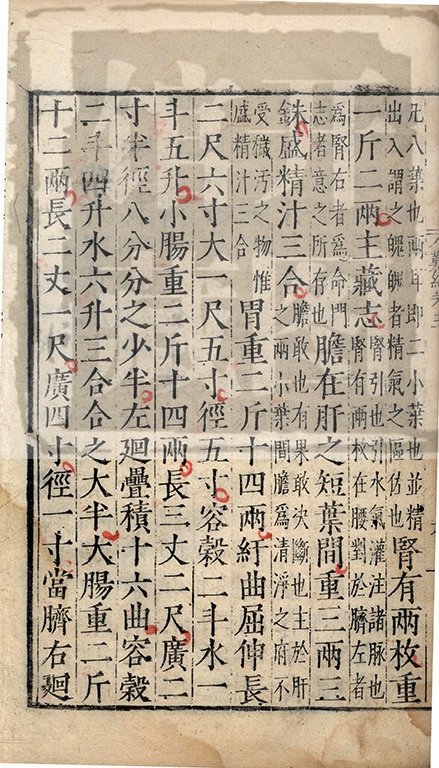 凡八葉也兩耳即二小葉也並精
出入謂之魄魄者精氣之匡佐也
腎有兩枚重
一斤二兩主藏志
腎引也引水氣灌注諸脉也
腎有兩枚在腰對於臍左者
為腎右者為命門
志者意之所存也
膽在肝之短葉間重三兩三
銖盛精汁三合
膽敢也有果敢決斷也主於肝
之兩小葉間膽為清淨之府不
受穢汚之物惟
盛精汁三合
胃重二斤十四兩紆曲屈伸長
二尺六寸大一尺五寸徑五寸容穀二斗水一
斗五升小腸重二斤十四兩長三丈二尺廣二
寸半徑八分分之少半左廻疊積十六曲容穀
二斗四升水六升三合合之大半大腸重二斤
十二兩長二丈一尺廣四寸徑一寸當臍右廻